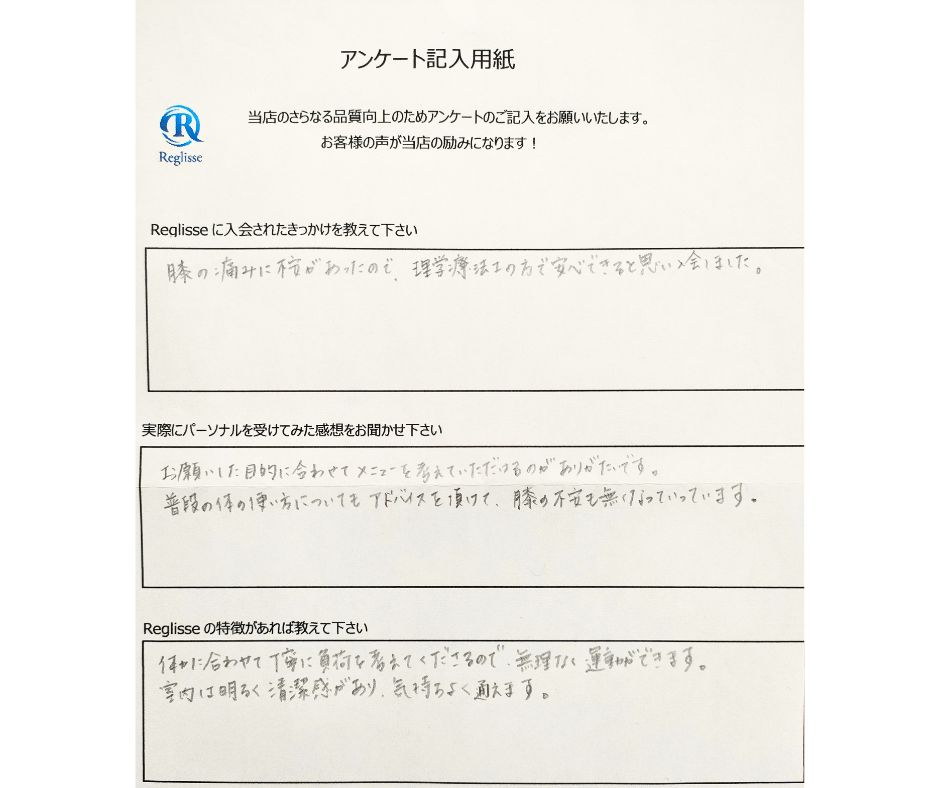 アンケート記入用紙
R
Reglisse
当店のさらなる品質向上のためアンケートのご記入をお願いいたします。
お客様の声が当店の励みになります！
Reglisse に入会されたきっかけを教えて下さい
膝の痛みに不安があったので、理学療法士の方で安心できると思い入会しました。
実際にパーソナルを受けてみた感想をお聞かせ下さい
お願いした目的に合わせてメニューを考えていただけるのがありがたいです。
普段の体の使い方についてもアドバイスを頂けて、膝の不安も無くなっていっています。
Reglisse の特徴があれば教えて下さい
体力に合わせて丁寧に負荷を考えてくださるので、無理なく運動ができます。
室内は明るく清潔感があり、気持ちよく通えます。